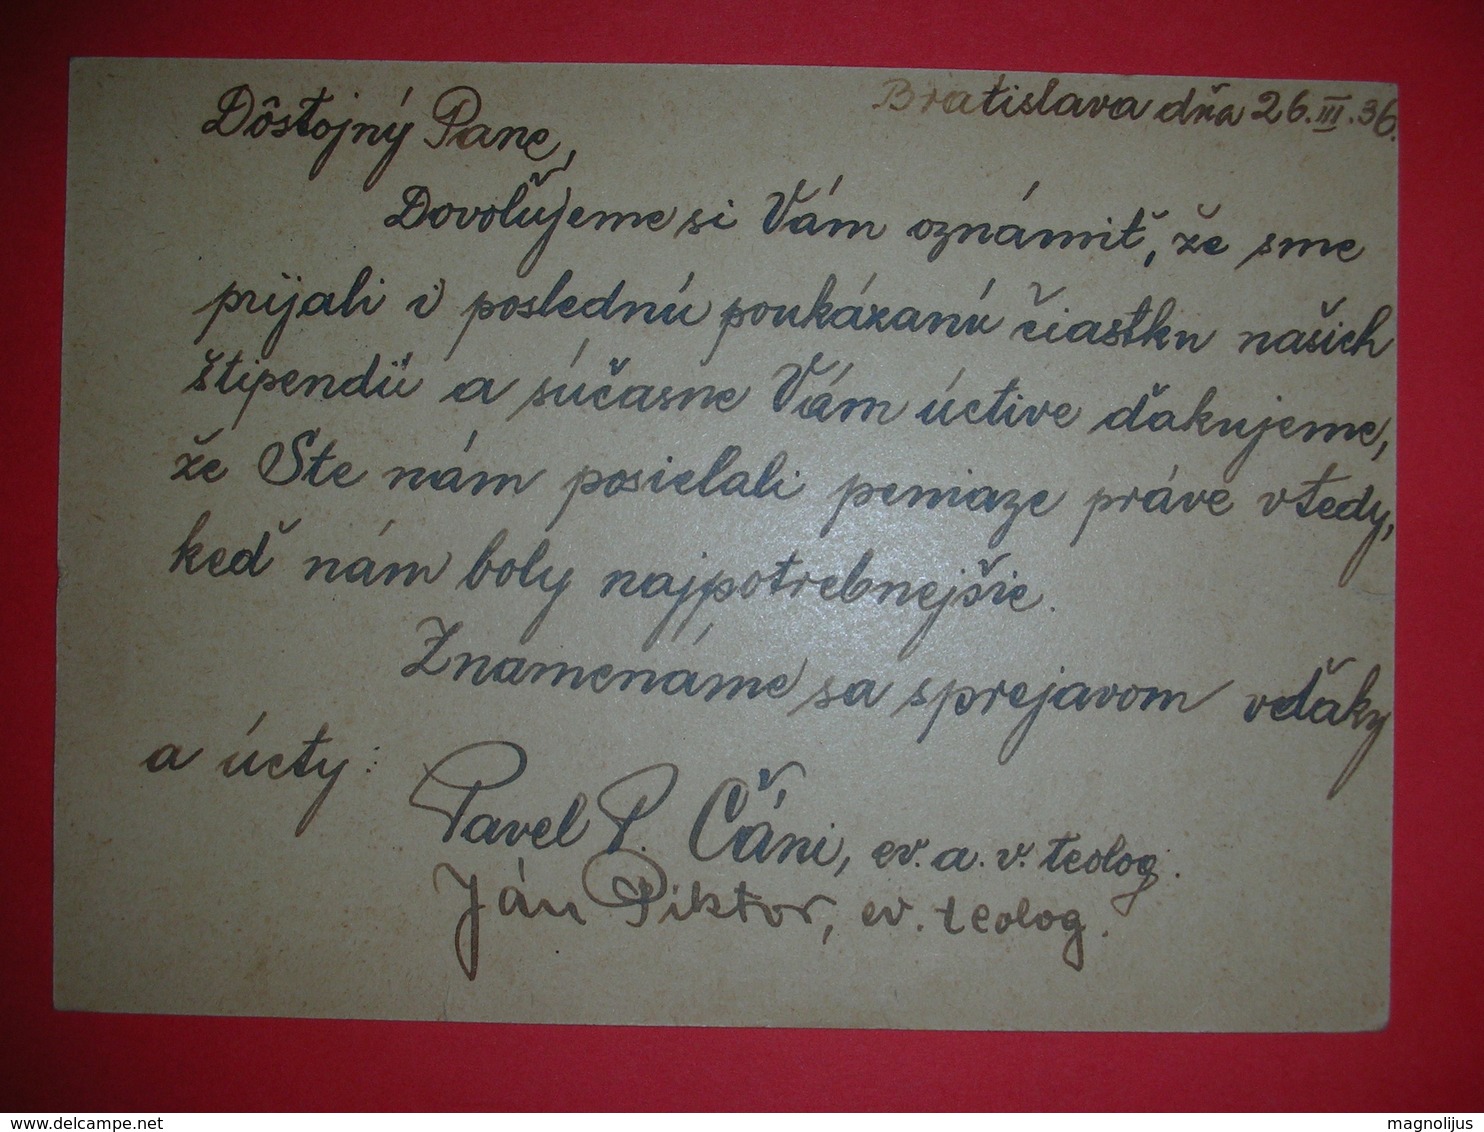 Bratislava dňa 26.III.36.
Dôstojný Pane,
Dovoľujeme si Vám oznámiť, že sme
prijali i poslednú poukázanú čiastku našich
štipendií a súčasne Vám úctive ďakujeme,
že Ste nám posielali peniaze práve vtedy,
keď nám boly najpotrebnejšie.
Znamenáme sa sprejavom vďaky
a úcty:
Pavel P. Čáni, ev. a. v. teolog.
Ján Piktor, ev. teolog.
delcampe.net
magnolijus